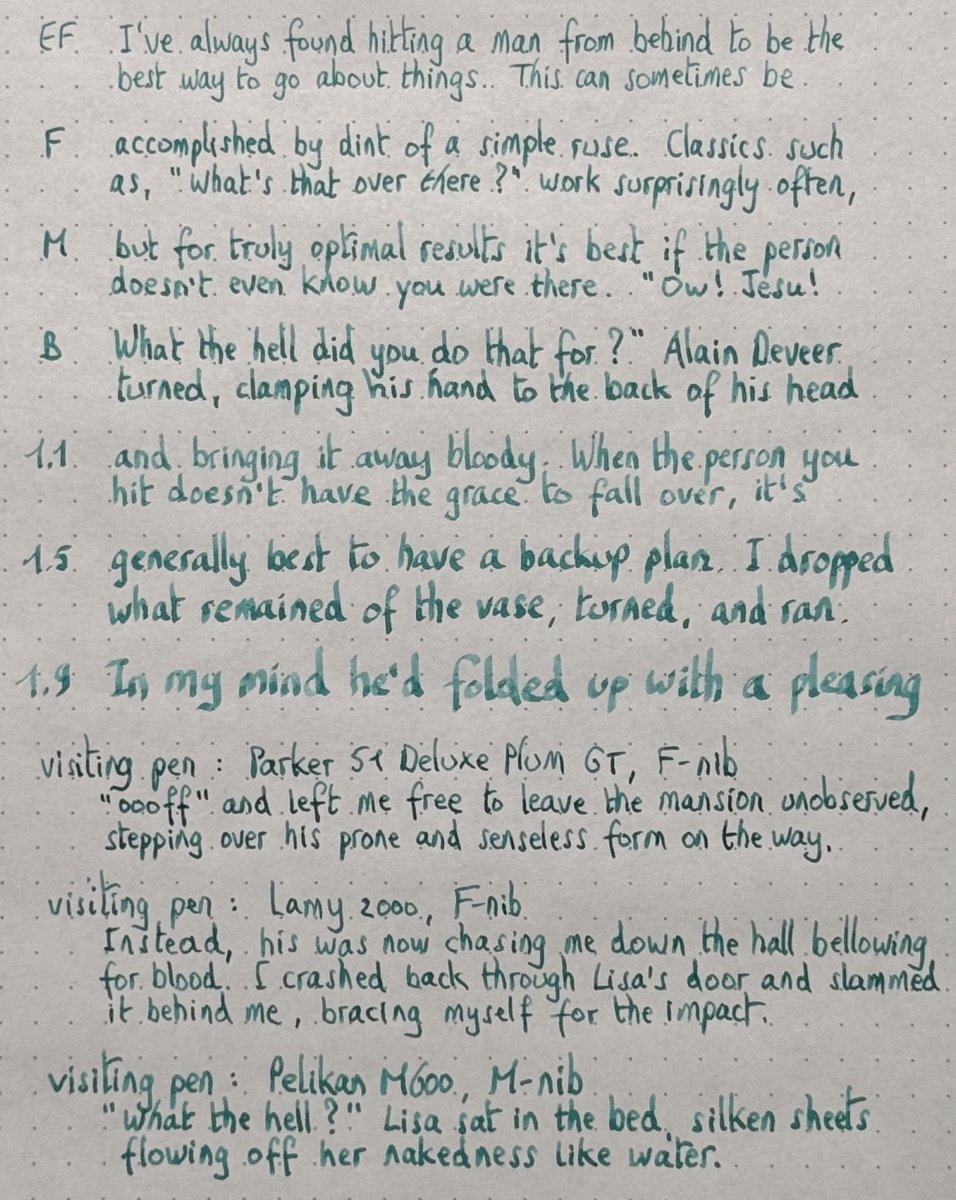 EF I've always found hitting a man from behind to be the
best way to go about things. This can sometimes be
F accomplished by dint of a simple ruse. Classics such
as, "What's that over there?" work surprisingly often,
M but for truly optimal results it's best if the person
doesn't even know you were there. "Ow! Jesu!
B What the hell did you do that for?" Alain Deveer
turned, clamping his hand to the back of his head
1.1 and bringing it away bloody. When the person you
hit doesn't have the grace to fall over, it's
1.5 generally best to have a backup plan. I dropped
what remained of the vase, turned, and ran.
1.9 In my mind he'd folded up with a pleasing
visiting pen: Parker 51 Deluxe Plum GT, F-nib
"oooff" and left me free to leave the mansion unobserved,
stepping over his prone and senseless form on the way.
visiting pen: Lamy 2000, F-nib
Instead, his was now chasing me down the hall bellowing
for blood. I crashed back through Lisa's door and slammed
it behind me, bracing myself for the impact.
visiting pen: Pelikan M600, M-nib
"What the hell?" Lisa sat in the bed, silken sheets
flowing off her nakedness like water.